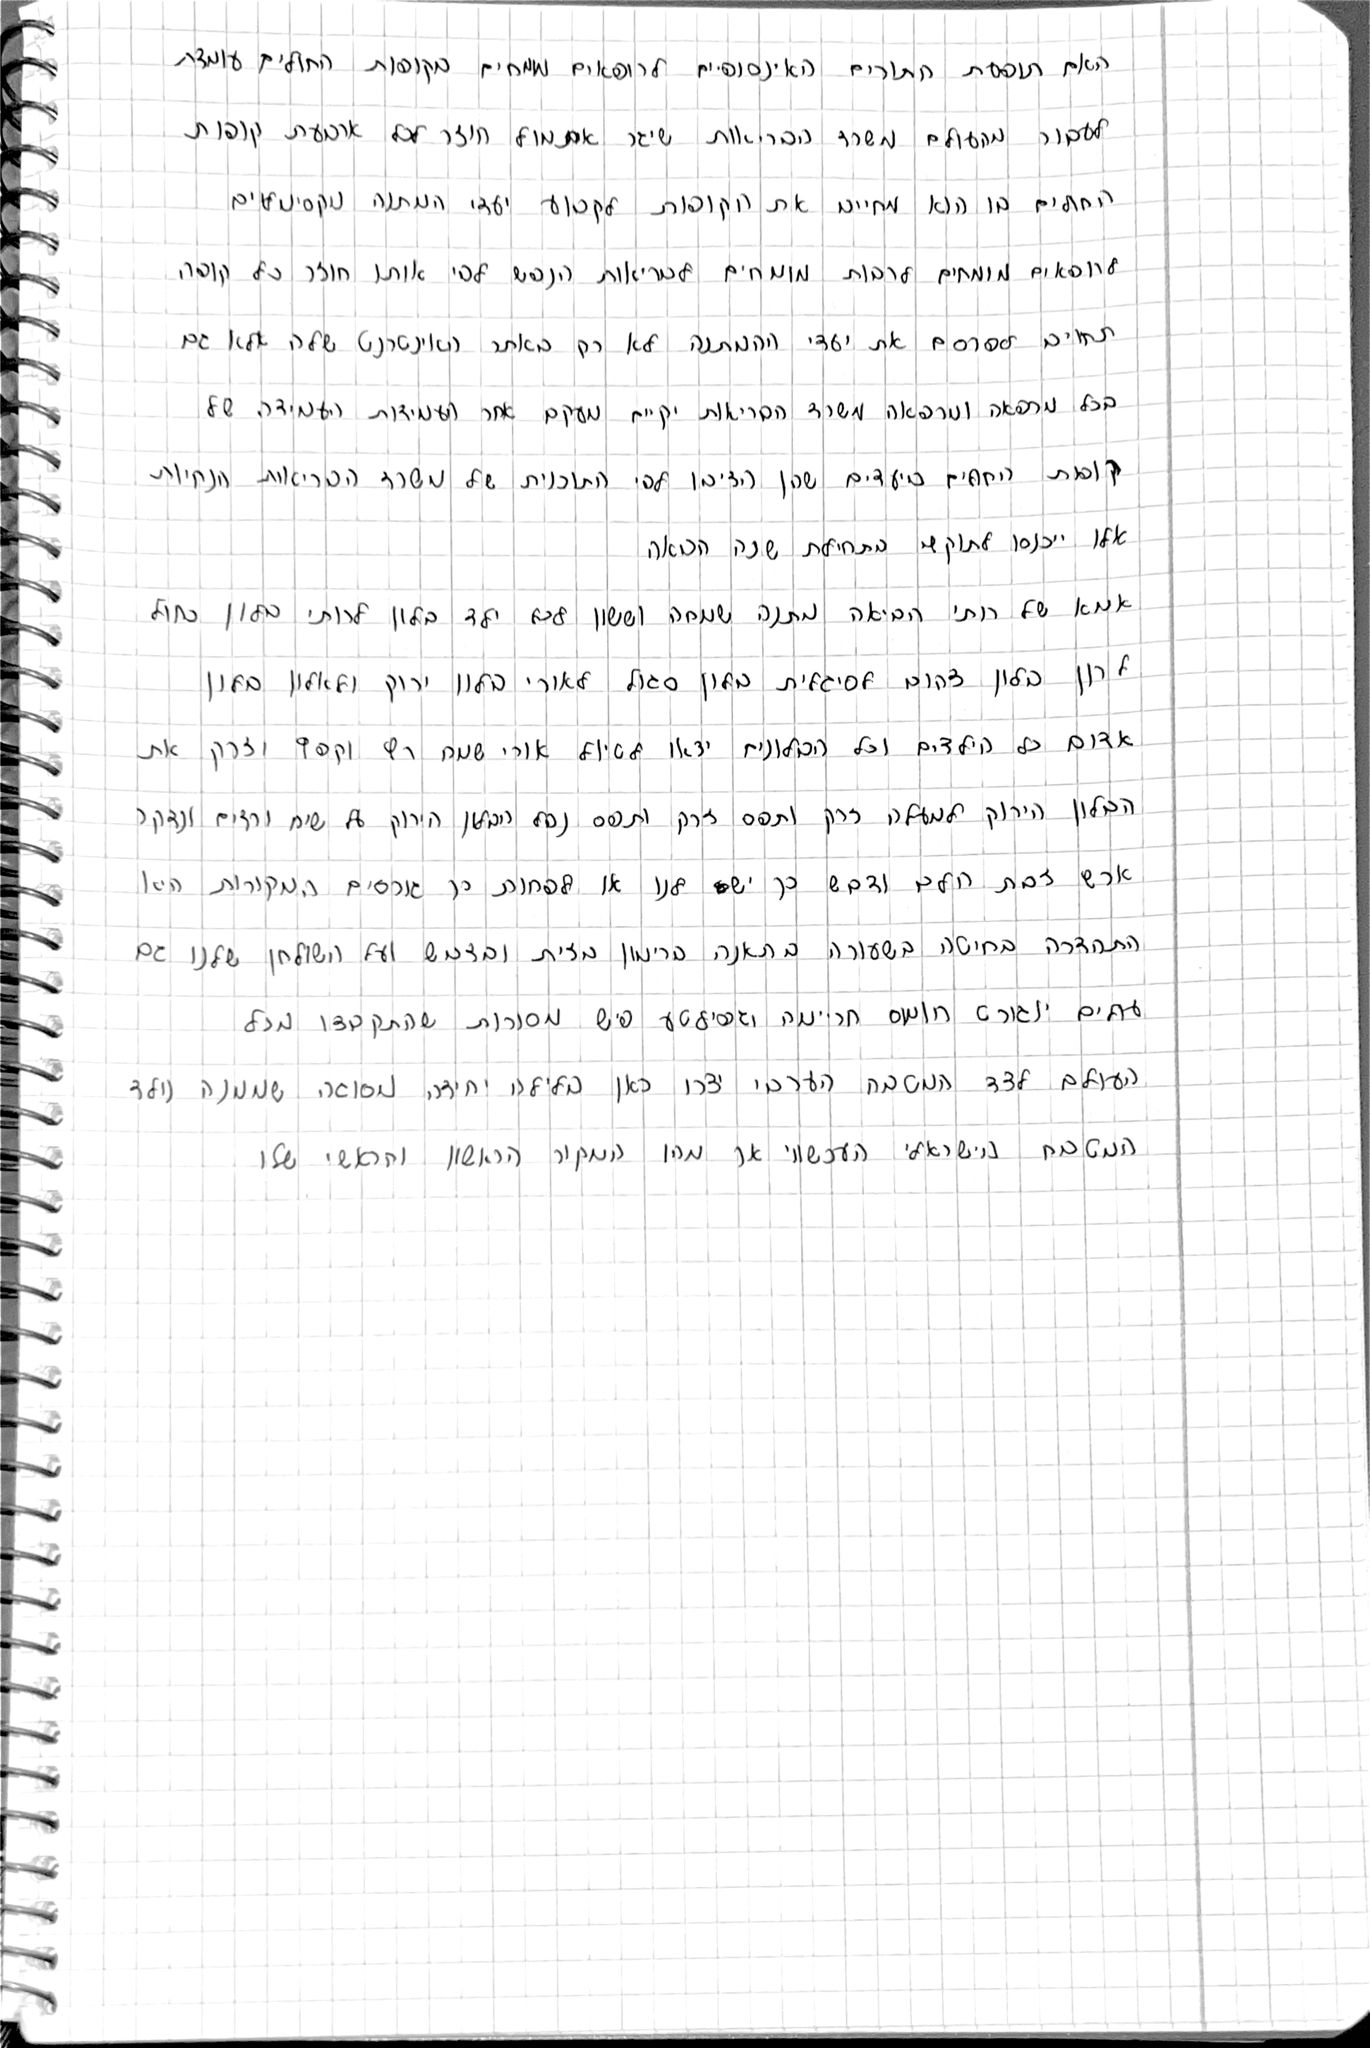 האם תופעת התורים האינסופיים לרופאים מומחים בקופות החולים עומדת
לעבור מהעולם משרד הבריאות שיגר אתמול חוזר לכל ארבעת קופות
החולים בו הוא מחייב את הקופות לקבוע יעדי המתנה מקסימליים
לרופאים מומחים לרבות מומחים לבריאות הנפש לפי אותו חוזר כל קופה
תחויב לפרסם את יעדי ההמתנה לא רק באתר האינטרנט שלה אלא גם
בכל מרפאה ומרפאה משרד הבריאות יקיים מעקב אחר העמידות העמידה של
קופות החולים ביעדים שהן הציבו לפי התוכנית של משרד הבריאות הנקיות
אלו ייכנסו לתוקף בתחילת שנה הבאה
אמא של רותי הביאה מתנה שמחה וששון לכל ילד בלון לרותי בלון כחול
לרון בלון צהוב לסיגלית בלון סגול לאורי בלון ירוק ולאלון בלון
אדום כל הילדים וכל הבלונים יצאו לטיול אורי שמח רץ וקפץ וזרק את
הבלון הירוק למעלה זרק ותפס זרק ותפס נפל הבלון הירוק על שיח ורדים ונדקר
ארש זבת חלב ודבש כך יש לנו או לפחות כך גורסים המקורות היא
התהדרה בחיטה בשעורה בתאנה ברימון בזית ובדבש ועל השולחן שלנו גם
עלים יוגורט חומוס חריימה וגפילטע פיש מסורות שהתקבצו מכל
העולם לצד המטבח הערבי יצרו כאן בלילה יחידה מסוגה שממנה נולד
המטבח הישראלי העכשווי אך מהו המקור הראשון והראשי שלו